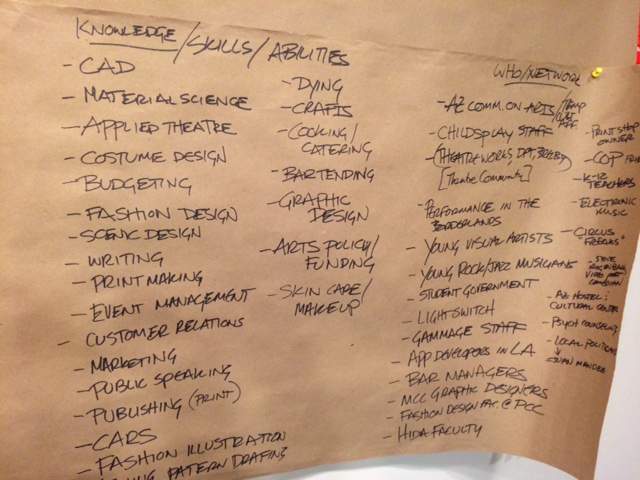 KNOWLEDGE/SKILLS/ABILITIES
- CAD
- MATERIAL SCIENCE
- APPLIED THEATRE
- COSTUME DESIGN
- BUDGETING
- FASHION DESIGN
- SCENIC DESIGN
- WRITING
- PRINT MAKING
- EVENT MANAGEMENT
- CUSTOMER RELATIONS
- MARKETING
- PUBLIC SPEAKING
- PUBLISHING (PRINT)
- CARS
- FASHION ILLUSTRATION
PATERN DRAFING
- DYING
- CRAFTS
- COOKING/
CATERING
- BARTENDING
- GRAPHIC
DESIGN
- ARTS POLICY/
FUNDING
- SKIN CARE/
MAKEUP
WHO/NETWORK
- AZ COMM. ON ARTS/
- CHILDSPLAY STAFF
- (THEATREWORKS, DPT,
[Theatre Community]
- PERFORMANCE IN THE
BORDERLANDS
- YOUNG VISUAL ARTISTS
- YOUNG ROCK/JAZZ MUSICIANS
- STUDENT GOVERNMENT
- LIGHTSWITCH
- GAMMAGE STAFF
- APP DEVELOPERS IN LA
- BAR MANAGERS
- MCC GRAPHIC DESIGNERS
- FASHION DESIGN FAC. @ PCC
- HIDA FACULTY
- PRINT SHOP
OWNER
- COP
- K-12
TEACHERS
- ELECTRONIC
MUSIC
- CIRCUS
FREAKS"
- AZ HOSTEL &
CULTURAL CENTER
- PSYCH COUNSELING
- LOCAL POLITICS